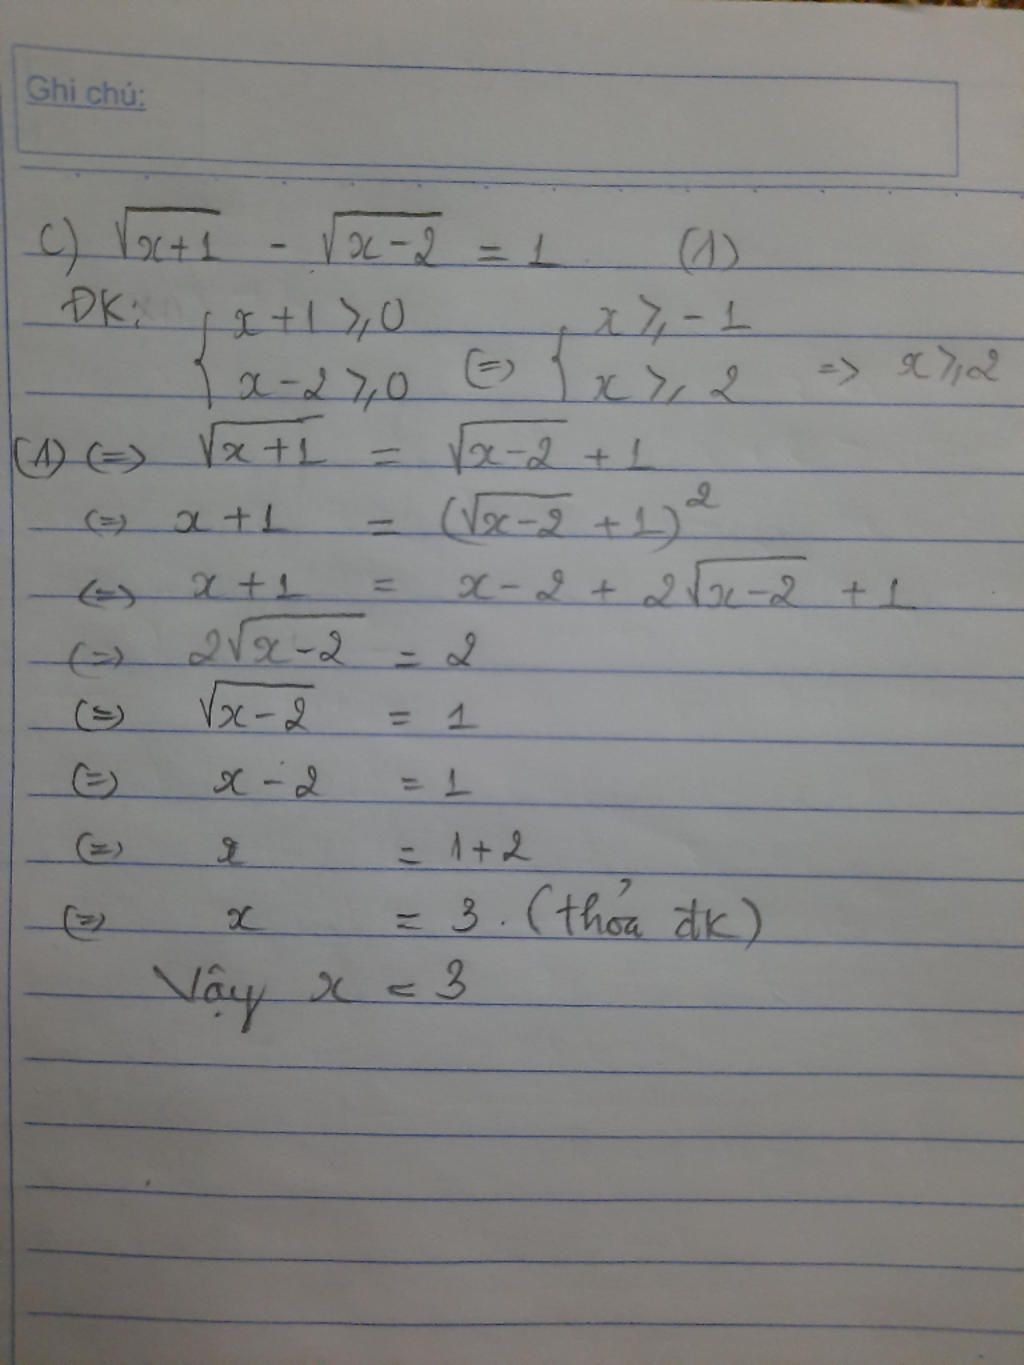 Ghi chú:
C) √(x+1) - √(x-2) = 1 (1)
ĐK: { x+1 ⩾ 0 (=) { x ⩾ -1
x-2 ⩾ 0 x ⩾ 2 => x ⩾ 2
(1) (=) √(x+1) = √(x-2) + 1
(=) x+1 = (√(x-2) + 1)²
(=) x+1 = x-2 + 2√(x-2) + 1
(=) 2√(x-2) = 2
(=) √(x-2) = 1
(=) x-2 = 1
(=) x = 1+2
(=) x = 3. (thỏa đk)
Vậy x = 3